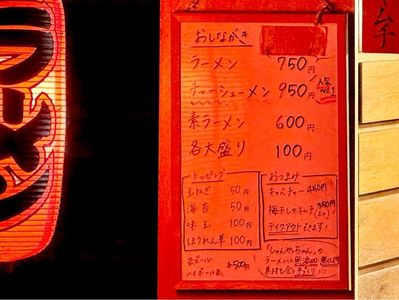 ラーメン
おしながき
ラーメン 750円
チャーシューメン 950円 人気No.1
素ラーメン 600円
各大盛り 100円
トッピング
玉ねぎ 50円
海苔 50円
味玉 100円
ほうれん草 100円
缶ビール
ハイボール 各500円
おつまみ
キャッチャー 450円
梅干しのキムチ 350円
テイクアウトできます!
ラーメンに